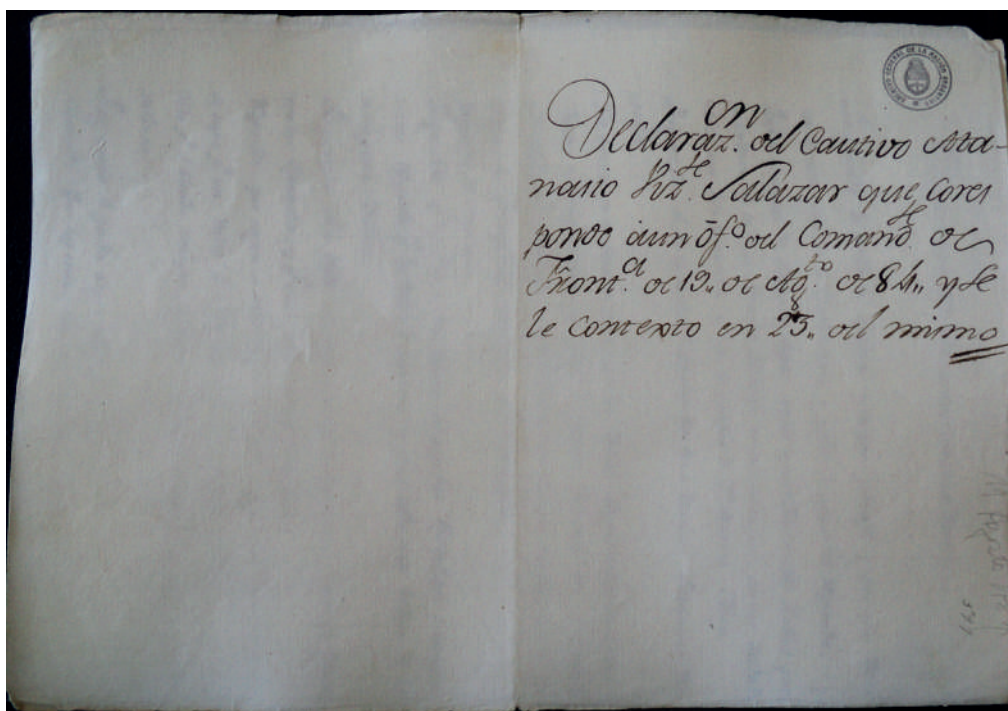 ARCHIVO GENERAL DE LA NACION ARGENTINA
Declarazon. del Cautivo Ata-
nasio de Salazar que, cores
ponde aun ofo. del Comande. de
Fronta. de 19,, de Agto. de 84,, y se
le contexto en 23,, del mismo